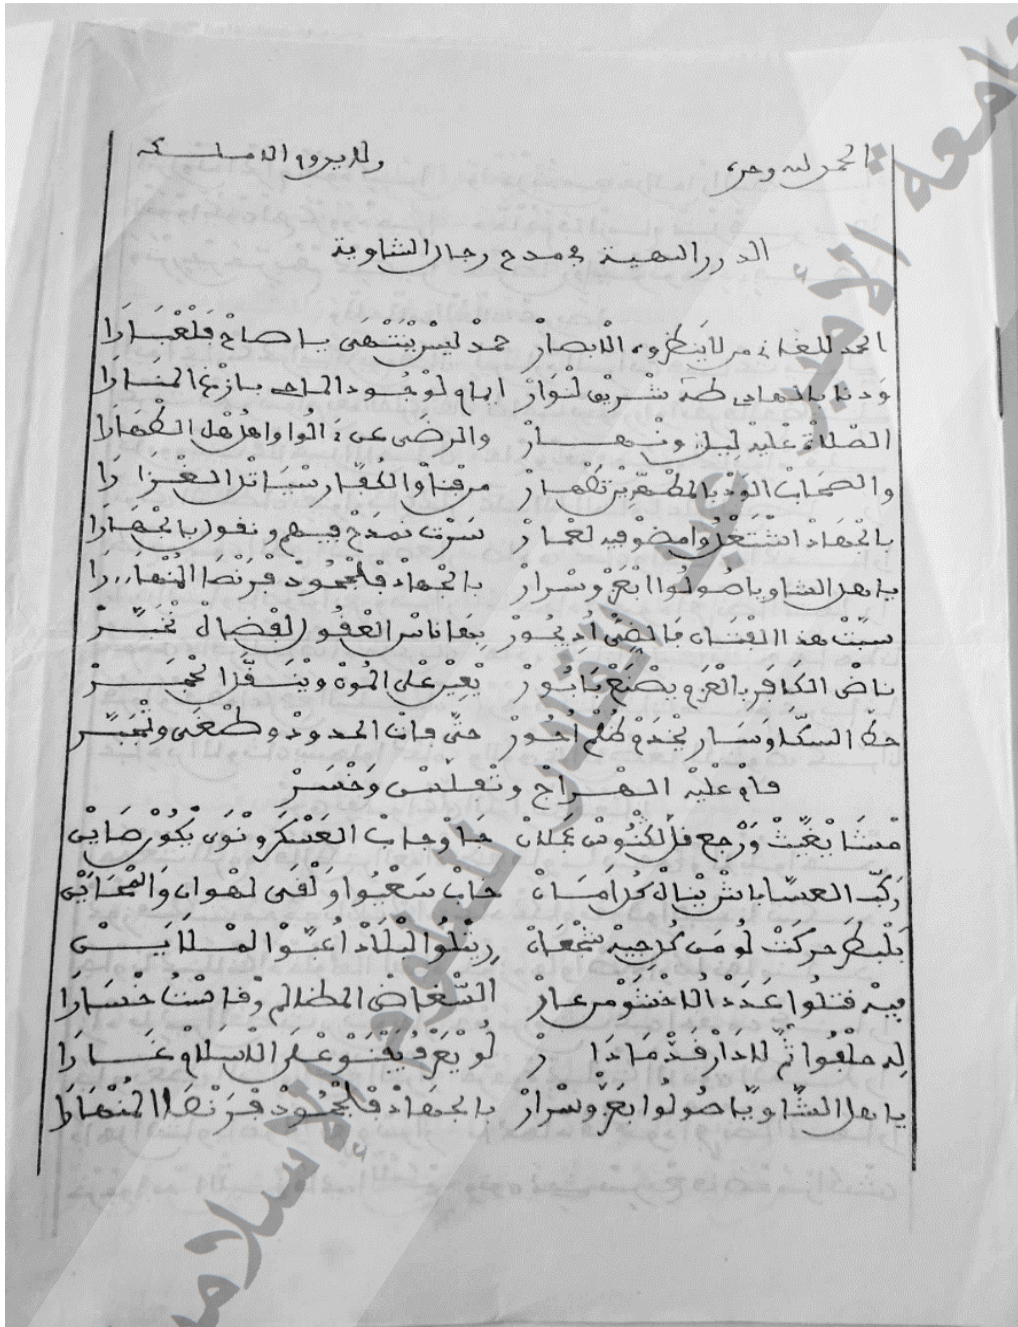 الحمد لله وحده ولا يدوم الا ملكه
الدرر البهية في مدح رجال الشاوية
الحمد للغاني من لا ينظروه الابصار حمد ليس ينتهى يا صاح فلعبارا
ودنا بالهادي طه شريق لنوار امام لوجود الماحي بازغ المنارا
الصلاة عليه ليل ونهار والرضى عن ءالوا واهل الطهارا
والصحاب الود بالمطهرين تطهار من فناوا الكفار سياتل الغزارا
بالجهاد اشتغلوا مضوفيه لعمار سرت نمدح فيهم ونفول بالجهارا
يا هل الشاويا صولوا ابعز وسرار بالجهاد فلجحود فرنصا المنهارا
سبت هذا الفتان فالضى اد يجور بمعاناس العفول لفضال نخبر
ناض الكافر بالعزم يصنع بابور يعير على الموت وينفر المجمر
حط السكا وسار يخدم ظلم اجور حتى فات الحدود وطغى وتجبر
قام عليه الهراج وتفلس وخسر
مشا يغيث ورجع فالكنوش عجلان جا وجاب العسكر ونوى يكون صايل
ركب العسا باش ينال كل امان خاب سعيوا ولفى لهوان والمحاين
فلبطر حركت لو من كل جيه شجعان رينلوا لبلاد اعبوا المسلايس
فيه فتلوا عدد الا خشوا من عار الشغاض المظالم وفاست خسارا
له حلفوا ثم لا دار فد مادار لو يعرف يفنو على الاسلام غارا
يا هل الشاويا صولوا بعز وسرار بالجهاد فلجحود فرنصا المنهارا
جامعة الأمير عبد القادر للعلوم الإسلامية